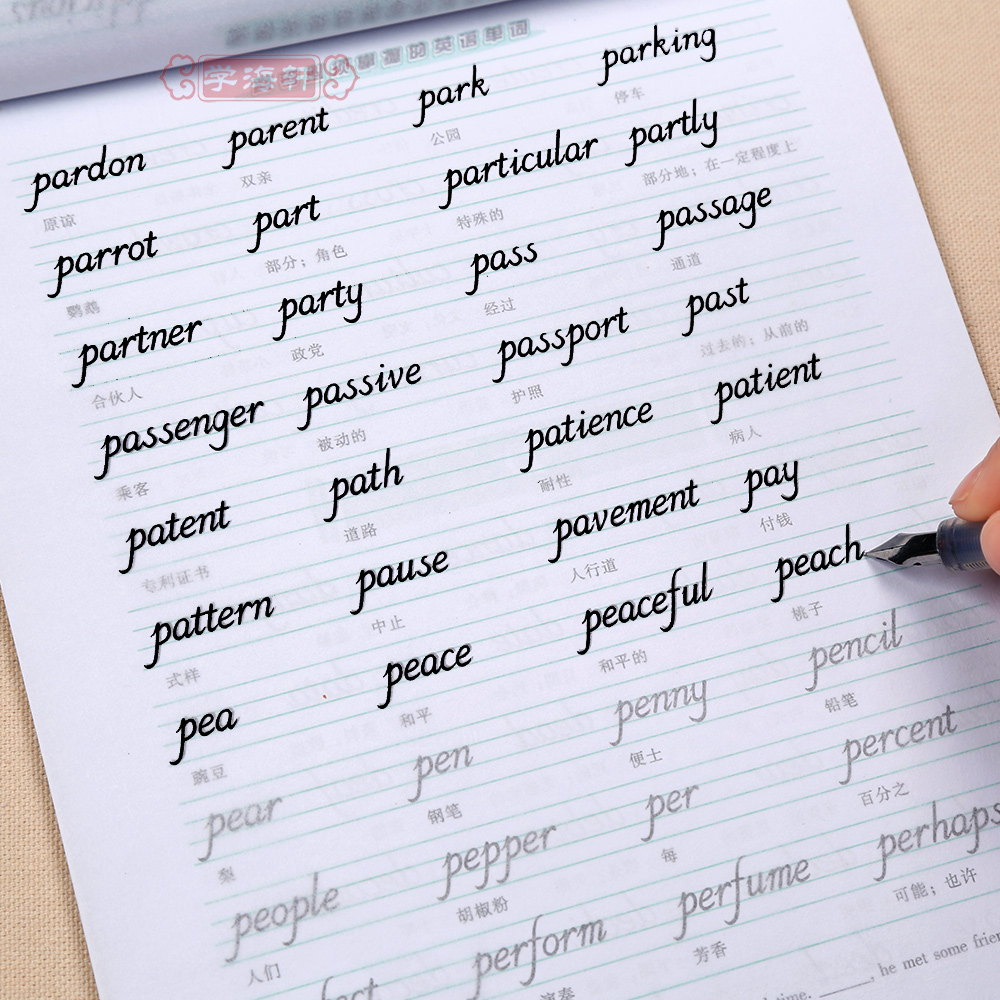 学海轩
pardon parent park parking
原谅 双亲 公园 停车
parrot part particular partly
鹦鹉 部分；角色 特殊的 部分地；在一定程度上
partner party pass passage
合伙人 政党 经过 通道
passenger passive passport past
乘客 被动的 护照 过去的；从前的
patent path patience patient
专利证书 道路 耐性 病人
pattern pause pavement pay
式样 中止 人行道 付钱
pea peace peaceful peach
豌豆 和平 和平的 桃子
pear pen penny pencil
梨 钢笔 便士 铅笔
people pepper per percent
人们 胡椒粉 每 百分之
perform perfume perhaps
演奏 芳香 可能；也许
he met some